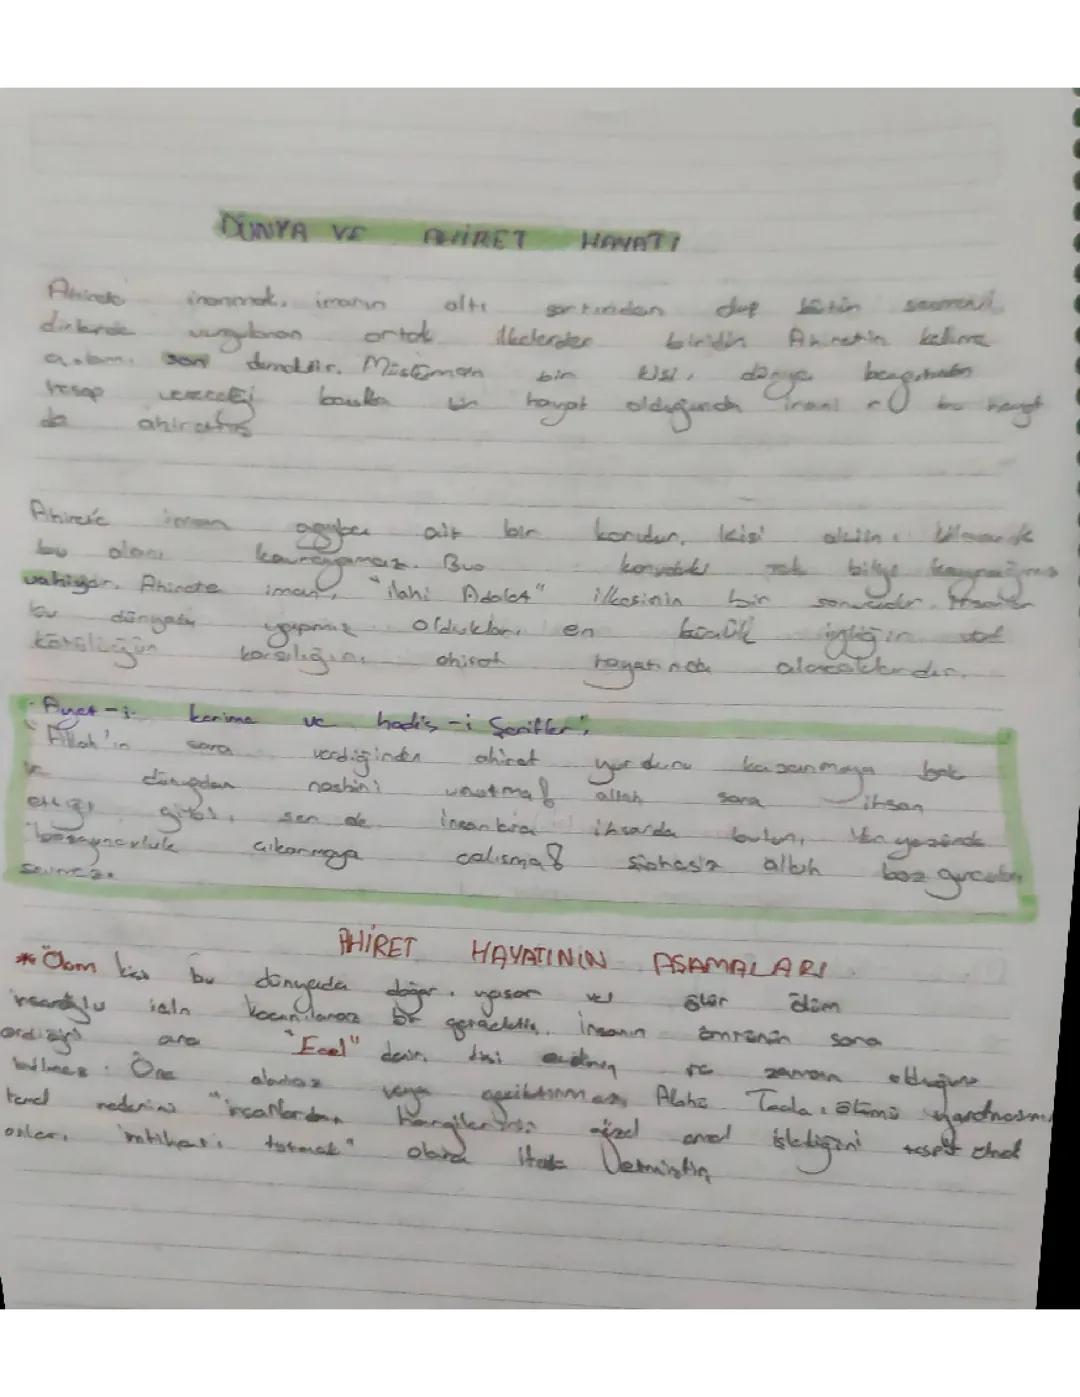 DÜNYA VE AHİRET HAYATI
inanmak, imanın altı şartından olup bütün semavi
dinlerde vurgulanan ortak ilkelerden biridir. Ahiretin kelime
anlamı son demektir. Müslüman bir kişi, dünya
hesap vereceği başka bir hayat olduğunda bu hayat
da ahirettir
Ahirete iman gayba ait bir konudur. Kişi aklını kullanarak
bu alanı kavrayamaz. Bu konudaki tek bilgi kaynağımız
vahiydir. Ahirete iman, "ilahi Adalet" ilkesinin bir sonucudur. İnsanlar
bu dünyada yapmış oldukları en küçük iyiliğin
kötülüğün karşılığını ahiret hayatında alacaklardır.
Ayet-i kerime ve hadis-i Şerifler;
"Allah'ın sana verdiğinden ahiret yurdunu kazanmaya bak
ve dünyadan nasibini unutma! allah sana ihsan
ettiği gibi, sen de insanlara ihsanda bulun, Yer yüzünde
bozgunculuk çıkarmaya çalışma! şüphesiz allah bozguncuları
sevmez.
AHİRET HAYATININ AŞAMALARI
* Ölüm bu dünyada doğar, yaşar ve ölür ölüm
insanoğlu için kaçınılamaz bir gerçektir. İnsanın ömrünün sona
erdiği ana "Ecel" denir. ne zaman olduğunu
bilmez. Öne alınmaz veya geciktirmez, Allahü Teala, ölümü yaratmasının
temel nedenini "insanlardan hangilerinin güzel amel işlediğini tespit etmek
onları imtihan'ı tutmak" olarak Vermiştir